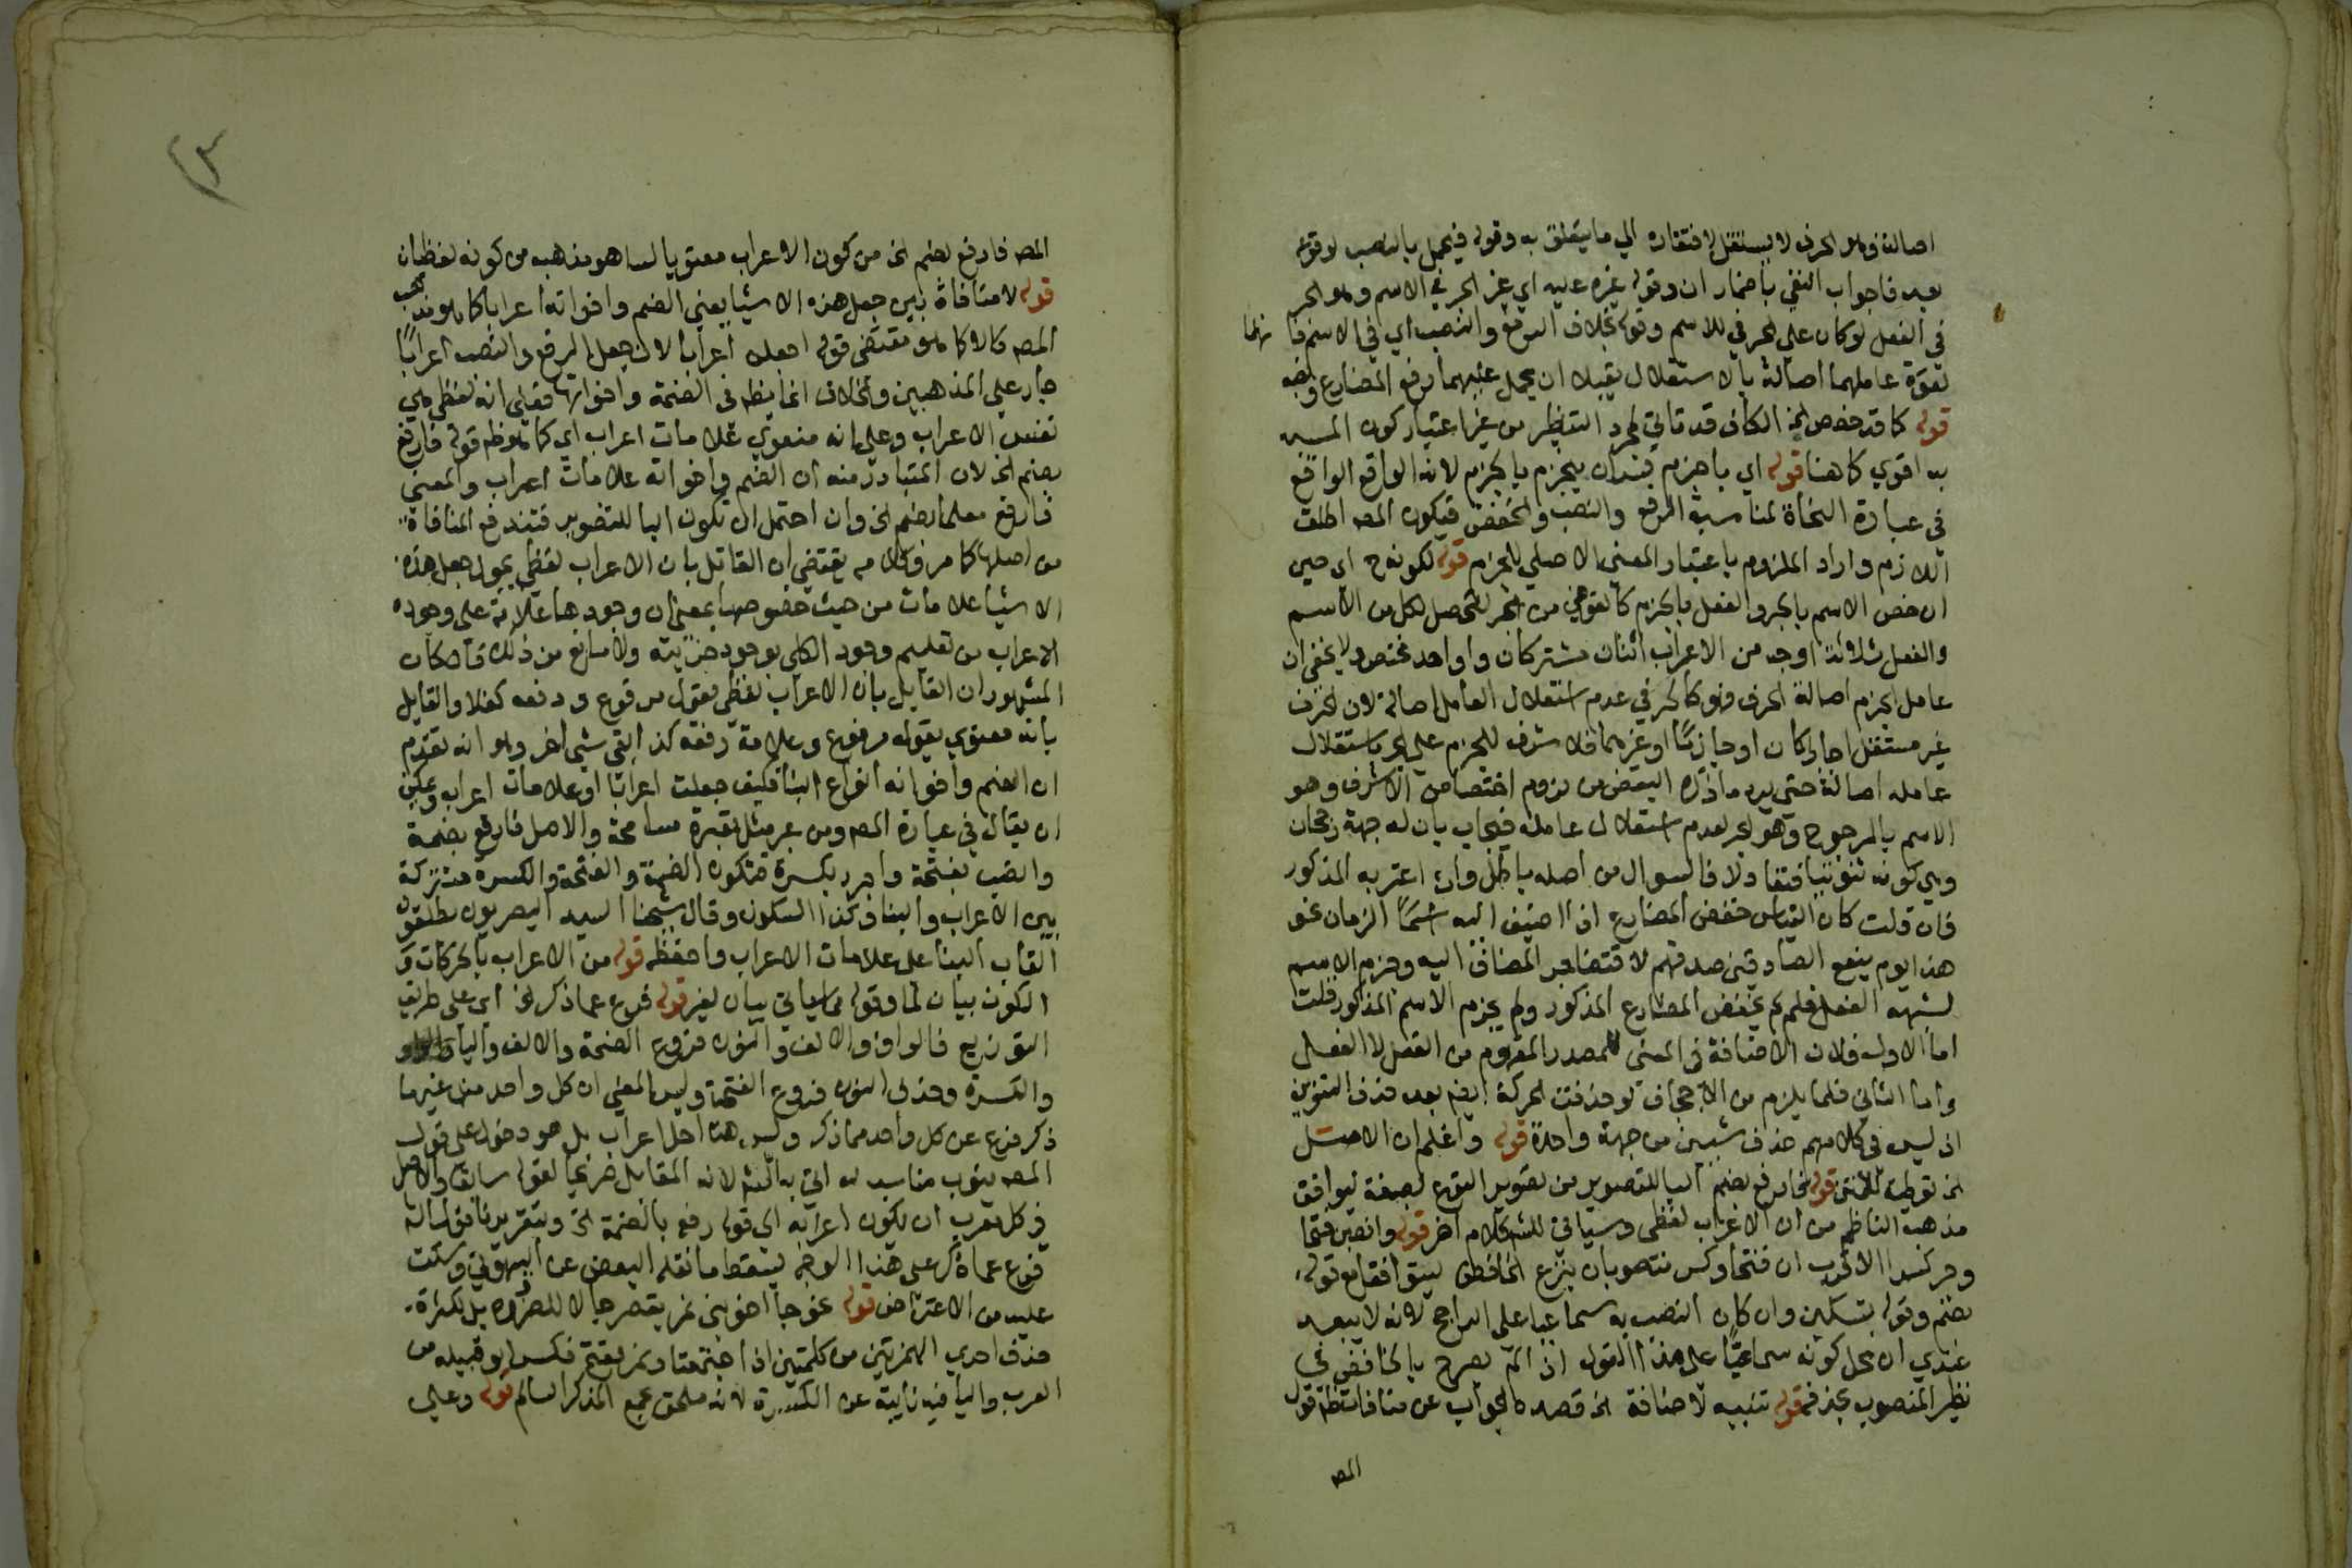 اصالة وهو الحرف لا يستقل لافتقاره الي ما يتعلق به وقوله فيحمل بالنصب لوقوعه
بعد فاجواب النفي باضمار ان وقوله غيره عليه اي غير الجر في الاسم وهو الجر
في الفعل لو كان علي الجر في للاسم وقوله بخلاف الرفع والنصب اي في الاسم فا نهما
لقوة عاملهما اصالة بالاستقلال يقبلا ان يحمل عليهما رفع المضارع ونصبه
قوله كما قد خصص الخ الكاف قد تاتي لمجرد التنظير من غير اعتبار كون المشبه
به اقوي كما هنا قوله اي بان ينجزم بالجزم لانه الواقع الواقع
في عبارة النحاة لمناسبة الرفع والنصب والخفض فيكون المصـ اطلق
اللازم واراد الملزوم باعتبار المعني الاصلي للجزم قوله لكونه ح اي حين
ان خص الاسم بالجر والفعل بالجزم كالعوض من الجر ليحصل لكل من الاسم
والفعل ثلاثة اوجه من الاعراب اثنان مشتركان وواحد مختص ولا يخفي ان
عامل الجزم اصالة الحرف فهو كالجر في عدم استقلال العامل اصالة لان الحرف
غير مستقل جارا كان او جازما او غيرهما فلا شرف للجزم علي الجر باستقلال
عامله اصالة حتي يرد ما ذكره البعض من لزوم اختصاص الاشرف وهو
الاسم بالمرجوح وهو الجر لعدم استقلال عامله فيجاب بان له جهة رجحان
وهي كونه ثبوتيا فالسوال من اصله باطل وان اغتر به المذكور
فان قلت كان القياس خفض المضارع اذا اضيف اليه اسما الزمان نحو
هذا يوم ينفع الصادقين صدقهم لاقتضا جر المضاف اليه وجزم الاسم
لشبهه الفعل فلم لم يخفض المضارع المذكور ولم يجزم الاسم المذكور قلت
اما الاول فلان الاضافة في المعني للمصدر المفهوم من الفعل لا الفعل
واما الثاني فلما يلزم من الاجحاف لو حذفت الحركة ايضا بعد حذف التنوين
اذ ليس في كلامهم حذف شيين من جهة واحدة قوله واعلم ان الاصل
الخ توطية للمتن قوله فارفع بضم البا للتصوير من تصوير النوع بصفة ليوافق
مذهب الناظم من ان الاعراب لفظي وسياتي للشـ كلام اخر قوله وانصبن فتحا
وجر كسرا الاقرب ان فتحا وكسرا منصوبان بنزع الخافض ليتوافقا مع قوله
بضم وقوله بتسكين وان كان النصب به سماعيا علي الراجح لانه لا يبعد
عندي ان محل كونه سماعيا علي هذا القول اذا لم يصرح بالخافض في
نظير المنصوب بحذفه قوله تنبيه لا منافاة الخ قصده الجواب عن منافاة نظم قول
المصـ
المصـ فارفع بضم الخ من كون الاعراب معنويا لما هو مذهبه من كونه لفظيا
قوله لا منافاة بين جعل هذه الاشيا يعني الضم واخواته اعرابا كما هو مذهب
المصـ كما هو مقتضي قوله اجعلن اعرابا لان جعل الرفع والنصب اعرابا
جار علي المذهبين وانما يظهر في الضمة واخواتها فعلي انه لفظي هي
نفس الاعراب وعلي انه معنوي علامات اعراب اي كما هو ظاهر قوله فارفع
بضم الخ لان المتبادر منه ان الضم واخواته علامات اعراب والمعني
فارفع معلما بضم الخ وان احتمل ان تكون البا للتصوير فتندفع المنافاة
من اصلها كما مر وكلامه يقتضي ان القائل بان الاعراب لفظي يجوز جعل هذه
الاشيا علامات من حيث خصوصها بمعني ان وجودها علامة علي وجود
الاعراب من تعليم وجود الكلي بوجود جزئيته ولا مانع من ذلك فان كان
المشهور ان القايل بان الاعراب لفظي يقول مرفوع ورفعه كذا والقايل
بانه معنوي يقول مرفوع وعلامة رفعه كذا بقي شي اخر وهو انه تقدم
ان الضم واخواته انواع البنا فكيف جعلت اعرابا او علامات اعراب ويمكن
ان يقال في عبارة المصـ ومن عبر مثل تعبيره مسامحة والاصل فارفع بضمة
وانصب بفتحة واجرر بكسرة فتكون الضمة والفتحة والكسرة مشتركة
بين الاعراب والبنا وكذا السكون وقال شيخنا السيد البصريون يطلقون
القاب البنا علي علامات الاعراب واحفظه قوله من الاعراب بالحركات و
السكون بيان لما وقوله مما سياتي بيان لغير قوله فرع عما ذكر الخ اي علي طريق
التوزيع فالواو والالف والنون فروع الضمة والالف واليا
والكسرة وحذف النون فروع الفتحة وليس المعني ان كل واحد من غيرها
ذكر فرع عن كل واحد مما ذكر وليس هذا حل اعراب بل هو دخول علي قول
المصـ ينوب مناسب له اتي به الشـ لانه المقابل صريحا لقوله سابقا والاصل
في كل معرب ان يكون اعرابه الي قوله رفع بالضمة الخ وبتقريرنا
فرع عما ذكر علي هذا الوجه يسقط ما نقله البعض عن البهوتي وسكت
عليه من الاعتراض قوله نحو جا اخو بني نمر بقصر جا لا للضرورة بل لكثرة
حذف احدي الهمزتين من كلمتين اذا اجتمعتا ونمر بفتح فكسر ابو قبيلة من
العرب واليا فيه نايبة عن الكسرة لانه ملحق بجمع المذكر السالم قوله وعلي